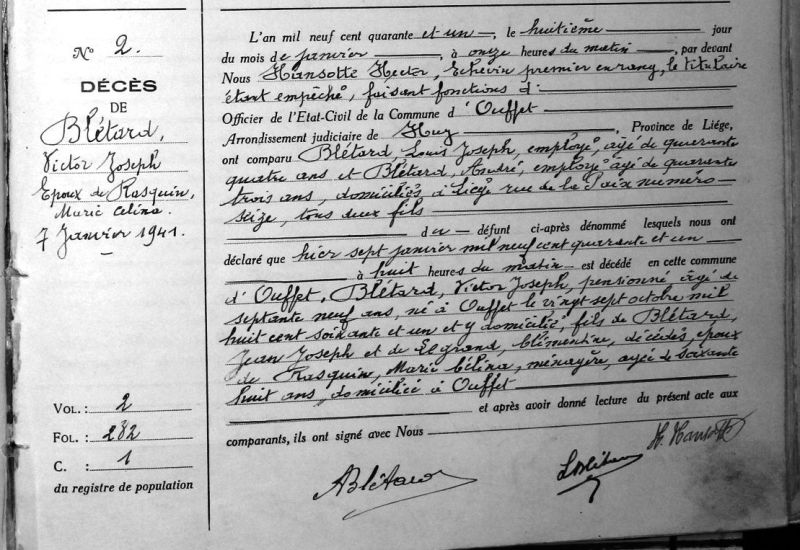 N° 2.
DÉCÈS
DE
Blétard,
Victor Joseph
Epoux de Rasquin,
Marie Célina.
7 Janvier 1941.
VOL. : 2
FOL. : 232
C. : 1
du registre de population
L'an mil neuf cent quarante et un, le huitième jour
du mois de janvier, à onze heures du matin, par devant
Nous Hansotte Hector, Echevin premier en rang, le titulaire
étant empêché, faisant fonctions d'
Officier de l'Etat-Civil de la Commune d' Ouffet
Arrondissement judiciaire de Huy, Province de Liége,
ont comparu Blétard Louis Joseph, employé, agé de quarante
quatre ans et Blétard, André, employé agé de quarante
trois ans, domiciliés à Liége rue de la Paix numéro
seize, tous deux fils
du défunt ci-après dénommé lesquels nous ont
déclaré que hier sept janvier mil neuf cent quarante et un
à huit heures du matin est décédé en cette commune
d'Ouffet, Blétard, Victor Joseph, pensionné âgé de
septante neuf ans, né à Ouffet le vingt sept octobre mil
huit cent soixante et un et y domicilié, fils de Blétard,
Jean Joseph et de Legrand, Clémentine, décédés, époux
de Rasquin, Marie Célina, ménagère, agée de soixante
huit ans, domicilié à Ouffet
et après avoir donné lecture du présent acte aux
comparants, ils ont signé avec Nous
H. Hansotte
ABlétard